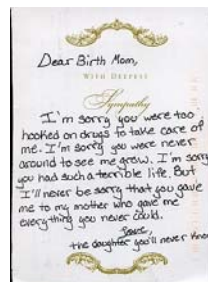 Dear Birth Mom,
WITH DEEPEST
Sympathy
I'm sorry you were too
hooked on drugs to take care of
me. I'm sorry you were never
around to see me grow. I'm sorry
you had such a terrible life. But
I'll never be sorry that you gave
me to my mother who gave me
everything you never could.
Love,
the daughter you'll never know